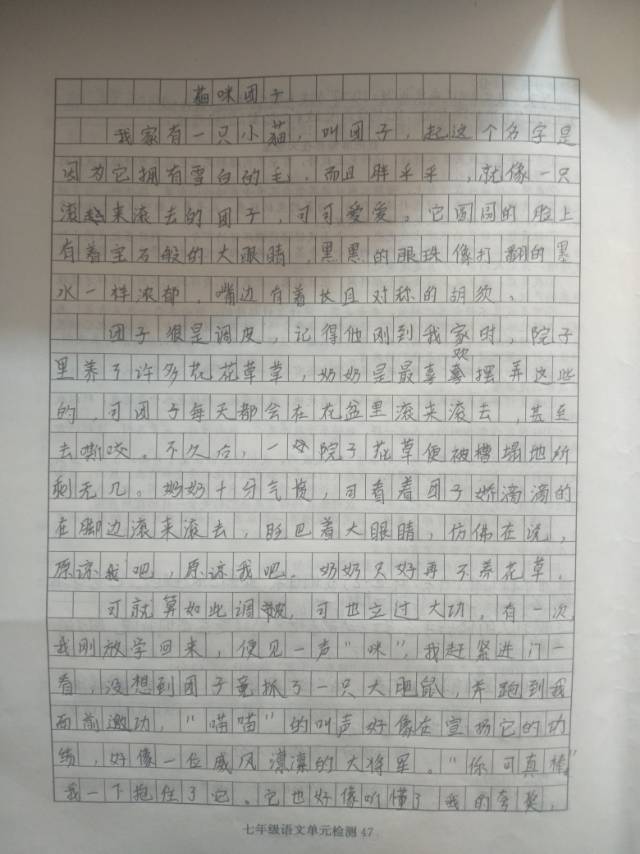 猫咪团子
我家有一只小猫，叫团子，起这个名字是
因为它拥有雪白的毛，而且胖乎乎，就像一只
滚来滚去的团子，可可爱爱。它圆圆的脸上
有着宝石般的大眼睛，黑黑的眼珠像打翻的墨
水一样浓郁，嘴边有着长且对称的胡须。
团子很是调皮，记得他刚到我家时，院子
里养了许多花花草草，奶奶是最喜欢摆弄这些
的，可团子每天都会在花盆里滚来滚去，甚至
去嘶咬。不久后，一院子花草便被糟塌地所
剩无几。奶奶十分气愤，可看着团子娇滴滴的
在脚边滚来滚去，眨巴着大眼睛，仿佛在说，
原谅我吧，原谅我吧。奶奶只好再不养花草。
可就算如此调皮，可也立过大功。有一次
我刚放学回来，便见一声“咪”，我赶紧进门一
看，没想到团子竟抓了一只大肥鼠，奔跑到我
面前邀功，“喵喵”的叫声好像在宣扬它的功
绩，好像一位威风凛凛的大将军。“你可真棒”
我一下抱住了它。它也好像听懂了我的夸奖，
七年级语文单元检测 47